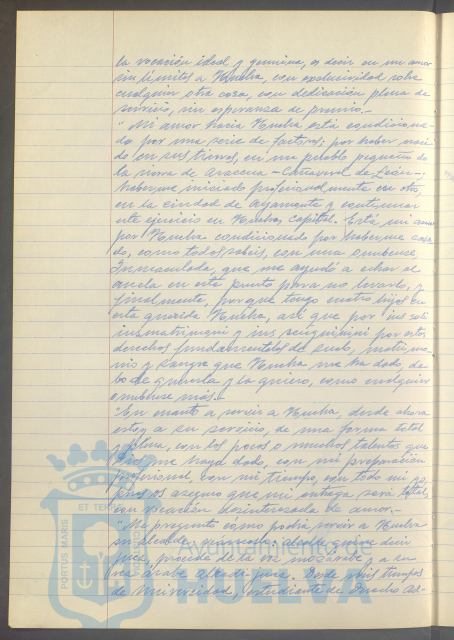 la vocación ideal y genuina, es decir en un amor
sin límites a Huelva, con exclusividad sobre
cualquier otra cosa, con dedicación plena de
servicio, sin esperanza de premio.-
"Mi amor hacia Huelva está condiciona-
do por una serie de factores; por haber naci-
do en sus tierras, en un pueblo pequeño de
la sierra de Aracena - Cañaveral de León -;
haberme iniciado profesionalmente en
en la ciudad de Ayamonte y continuar
este ejercicio en Huelva, capital. Está mi amor
por Huelva condicionado por haberme casa-
do, como todos sabéis, con una onubense,
Inmaculada, que me ayudó a echar el
ancla en este puerto para no levarlo, y
finalmente, porque tengo cuatro hijos en
esta querida Huelva, así que por ius soli
ius matrimonii y ius sanguinis por estos
derechos fundamentales de suelo, matrimo-
nio y sangre que Huelva me ha dado, de-
bo de quererla y la quiero, como cualquier
onubense más.-
"En cuanto a servir a Huelva, desde ahora
estoy a su servicio, de una forma total
y plena, con los pocos o muchos talentos que
Dios me haya dado, con mi preparación
profesional, con mi tiempo, con todo mi
os aseguro que mi entrega será total,
con vocación desinteresada de amor.-
"Me pregunto cómo podría servir a Huelva
un alcalde; alcalde quiere decir
juez, procede de la voz mozárabe y a su
vez árabe alcadí, juez. Desde mis tiempos
de Universidad, estudiante de Derecho Ad-
PORTUS MARIS
ET TERRAE
CUSTODIA
Ayuntamiento de
HUELVA